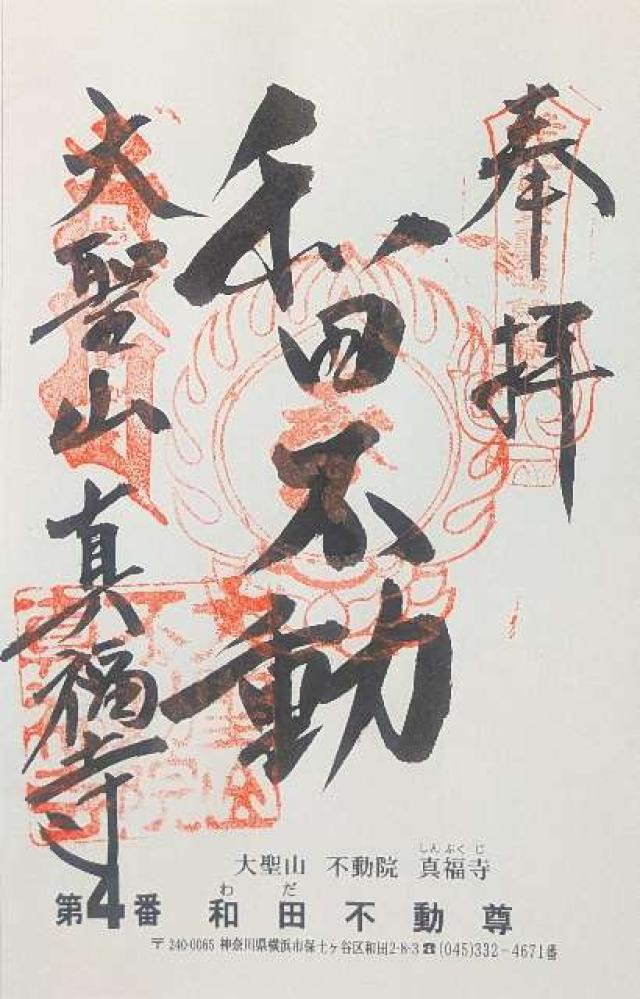 奉拝
和田不動
大聖山 真福寺
大聖山 不動院 真福寺
しんぷくじ
わだ
第4番 和田不動尊
〒240-0065 神奈川県横浜市保土ヶ谷区和田2-8-3☎(045)332-4671番